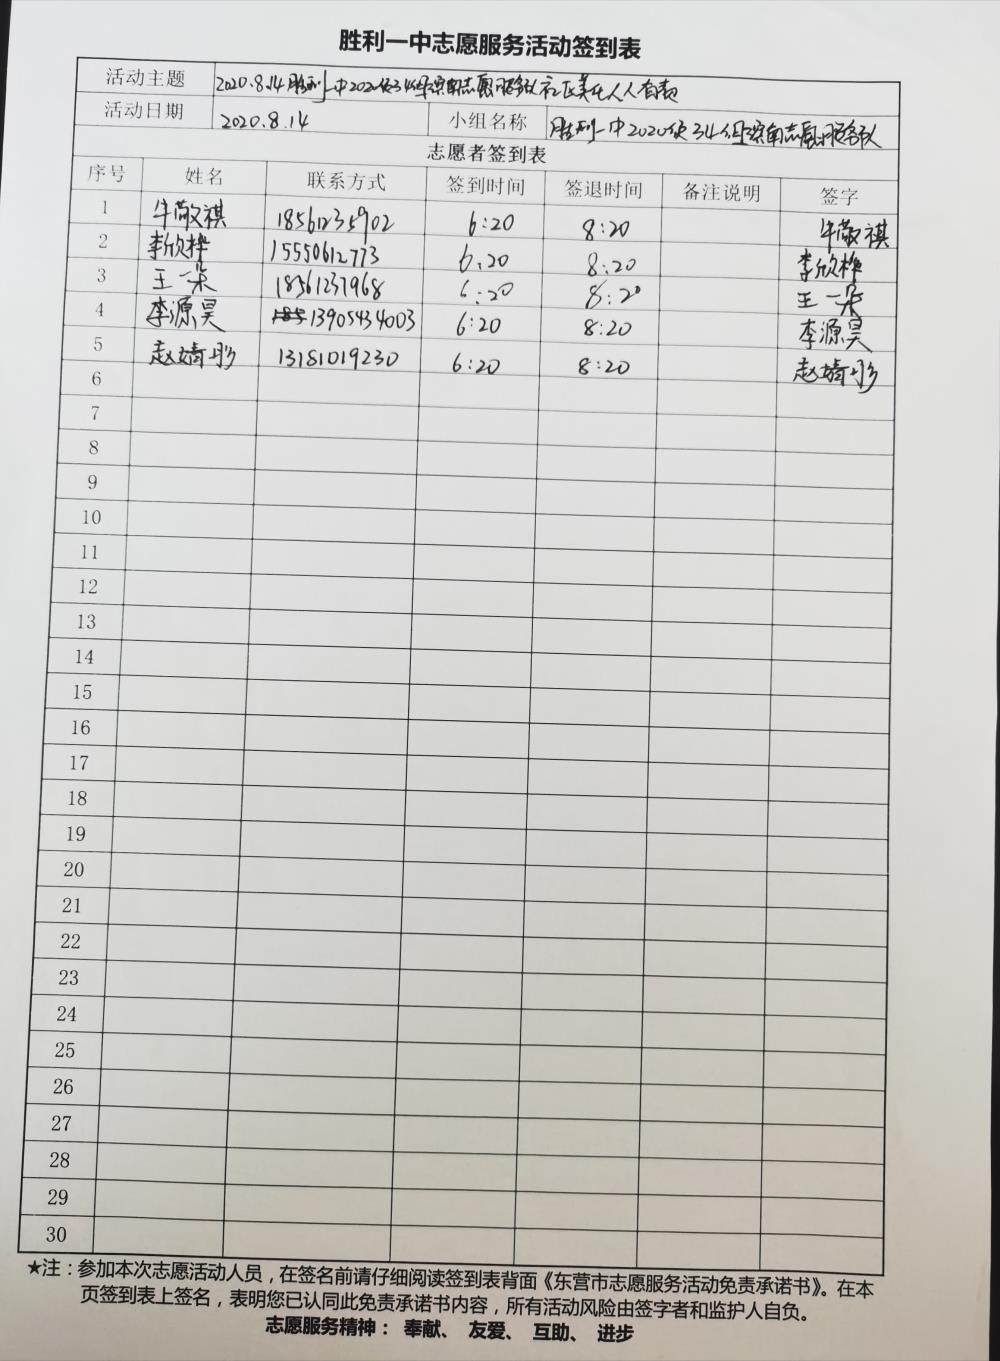 胜利一中志愿服务活动签到表
活动主题 2020.8.14胜利一中2020级34组滨南志愿服务队社区美化人人有责
活动日期 2020.8.14 小组名称 胜利一中2020级34组滨南志愿服务队
志愿者签到表
序号 姓名 联系方式 签到时间 签退时间 备注说明 签字
1 牛敬祺 18561235902 6:20 8:20 牛敬祺
2 李欣桦 15550612773 6:20 8:20 李欣桦
3 王一朵 18561237968 6:20 8:20 王一朵
4 李源昊 13905434003 6:20 8:20 李源昊
5 赵婧彤 13181019230 6:20 8:20 赵婧彤
6
7
8
9
10
11
12
13
14
15
16
17
18
19
20
21
22
23
24
25
26
27
28
29
30
★注：参加本次志愿活动人员，在签名前请仔细阅读签到表背面《东营市志愿服务活动免责承诺书》。在本
页签到表上签名，表明您已认同此免责承诺书内容，所有活动风险由签字者和监护人自负。
志愿服务精神： 奉献、 友爱、 互助、 进步